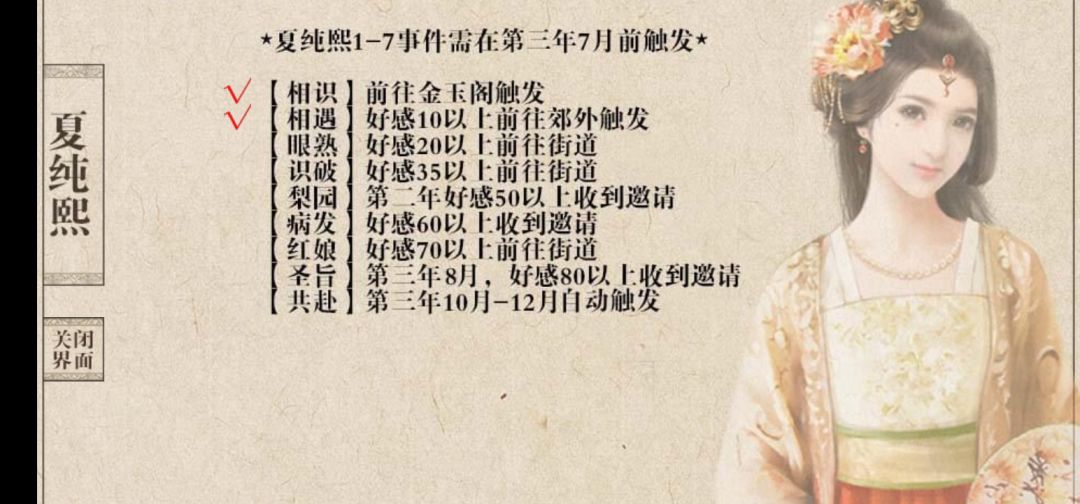 ★夏纯熙1-7事件需在第三年7月前触发★
【 相识 】前往金玉阁触发
【 相遇 】好感10以上前往郊外触发
【 眼熟 】好感20以上前往街道
【 识破 】好感35以上前往街道
【 梨园 】第二年好感50以上收到邀请
【 病发 】好感60以上收到邀请
【 红娘 】好感70以上前往街道
【 圣旨 】第三年8月，好感80以上收到邀请
【 共赴 】第三年10月-12月自动触发
夏纯熙
关闭
界面